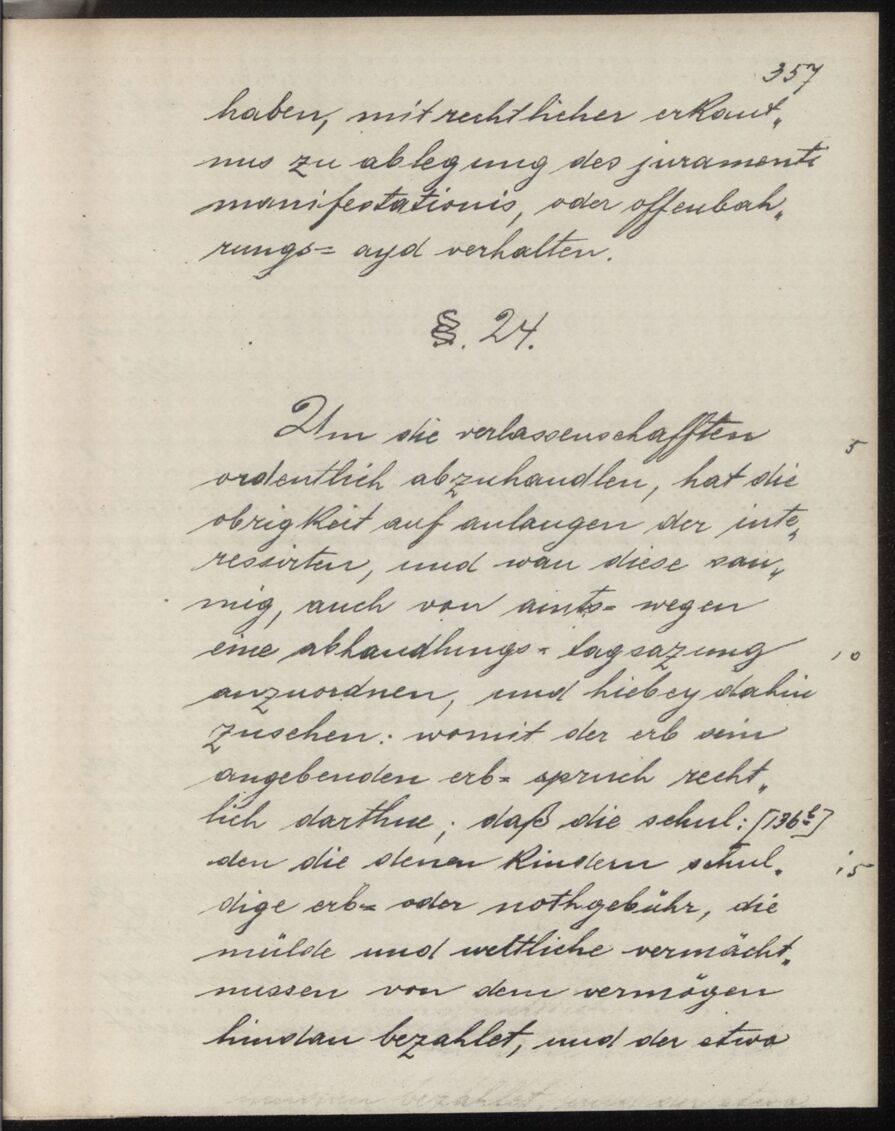 357
haben, mit rechtlicher erkant„
nus zu ablegung des juramenti
manifestationis, oder offenbah„
rungs= ayd verhalten.
§. 24.
Um die verlassenschafften 5
ordentlich abzuhandlen, hat die
obrigkeit auf anlangen der inte„
ressirten, und wan diese sau„
mig, auch von amts= wegen
eine abhandlungs= tagsazung 10
anzuordnen, und hiebey dahin
zusehen: womit der erb sein
angebenden erb= spruch recht„
lich darthue; daß die schul: [136
den die denen kindern schul„ 15
dige erb= oder nothgebühr, die
mülde und weltliche vermächt„
nussen von dem vermögen
hindan bezahlet, und der etwo